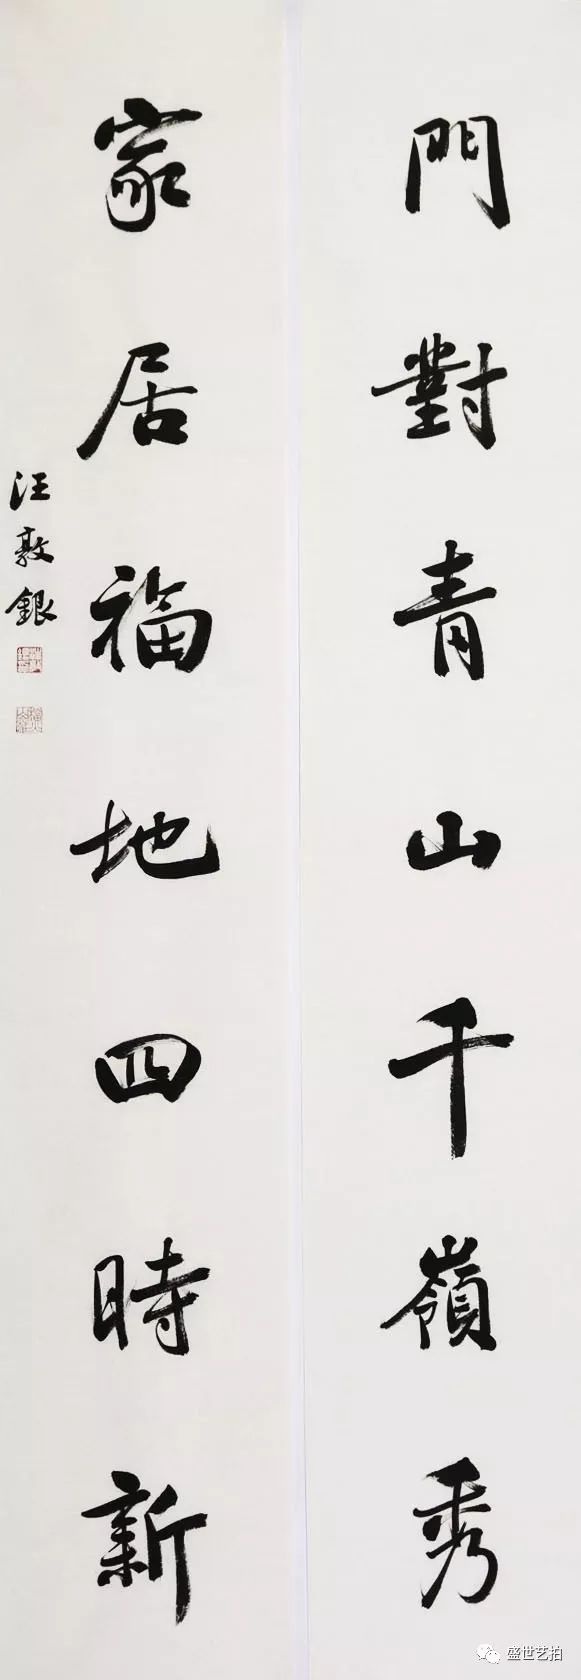 門對青山千嶺秀
家居福地四時新
汪敦銀
盛世艺拍